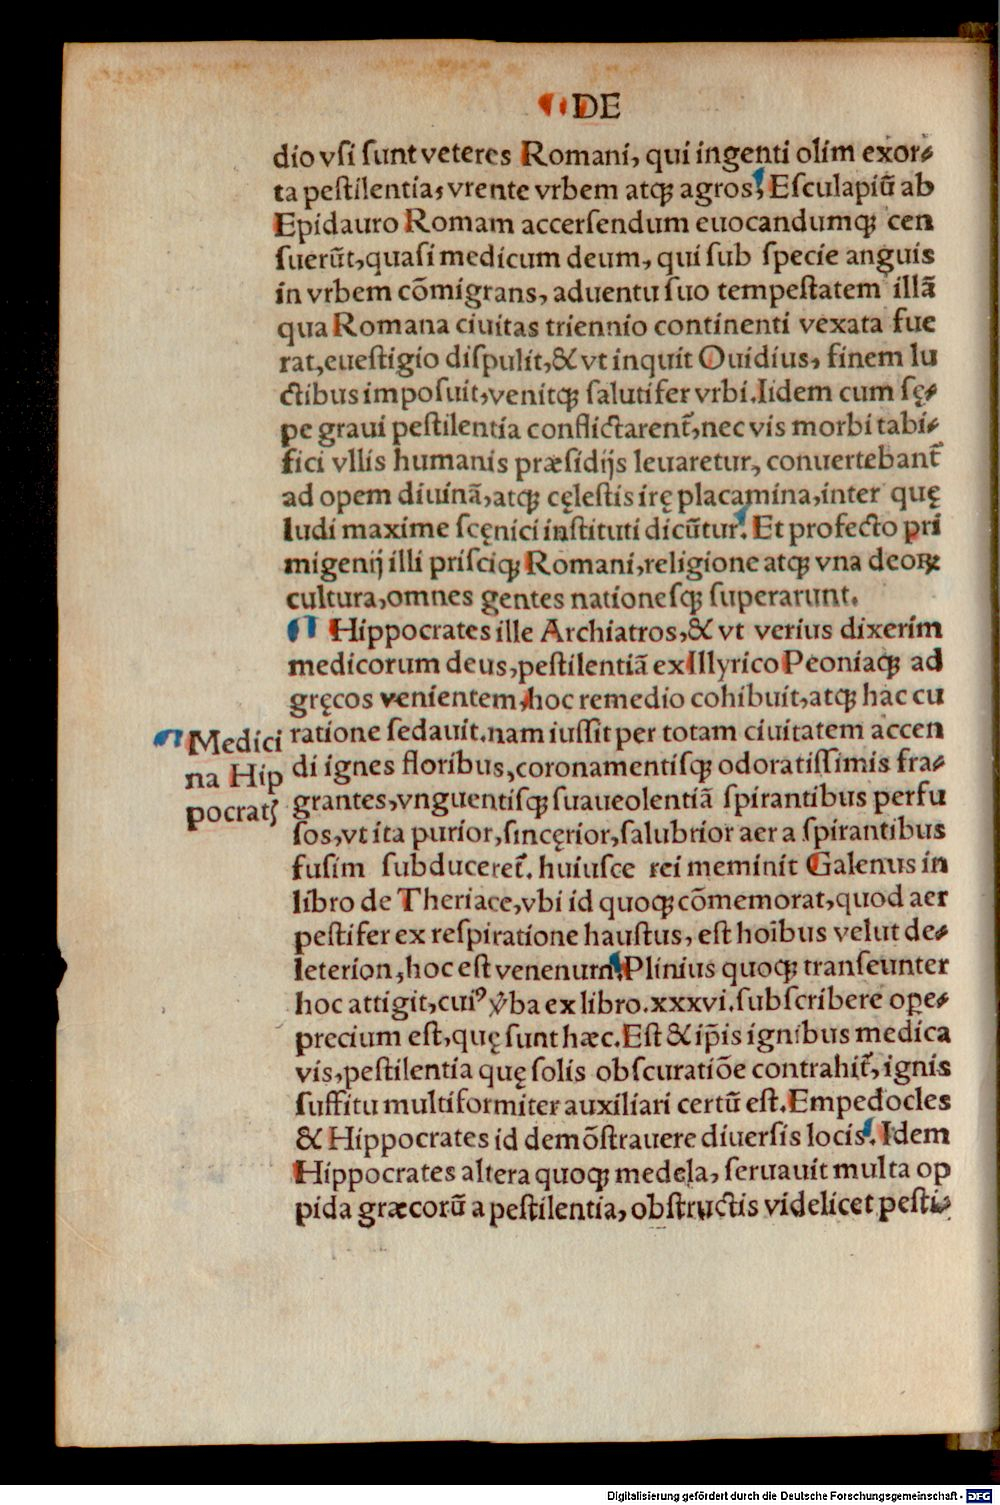 DE
dio vſi ſunt veteres Romani, qui ingenti olim exor-
ta peſtilentia, vrente vrbem atqꝫ agros, Eſculapiū ab
Epidauro Romam accerſendum euocandumqꝫ cen
ſuerūt, quaſi medicum deum, qui ſub ſpecie anguis
in vrbem cōmigrans, aduentu ſuo tempeſtatem illā
qua Romana ciuitas triennio continenti vexata fue
rat, eueſtigio diſpulit, & vt inquit Ouidius, finem lu
ctibus impoſuit, venitqꝫ ſalutifer vrbi. Iidem cum ſę-
pe graui peſtilentia conflictarent᷑, nec vis morbi tabi-
fici vllis humanis præſidijs leuaretur, conuertebant᷑
ad opem diuinā, atqꝫ cęleſtis irę placamina, inter quę
ludi maxime ſcęnici inſtituti dicūtur. Et profecto pri
migenij illi priſciqꝫ Romani, religione atqꝫ vna deoꝝ
cultura, omnes gentes nationeſqꝫ ſuperarunt.
Hippocrates ille Archiatros, & vt verius dixerim
medicorum deus, peſtilentiā ex Illyrico Peoniaqꝫ ad
gręcos venientem, hoc remedio cohibuit, atqꝫ hac cu
ratione ſedauit. nam iuſſit per totam ciuitatem accen
di ignes floribus, coronamentiſqꝫ odoratiſſimis fra-
grantes, vnguentiſqꝫ ſuaueolentiā ſpirantibus perfu
ſos, vt ita purior, ſincęrior, ſalubrior aer a ſpirantibus
fuſim ſubduceret᷑. huiuſce rei meminit Galenus in
libro de Theriace, vbi id quoqꝫ cōmemorat, quod aer
peſtifer ex reſpiratione hauſtus, eſt hoībus velut de-
leterion, hoc eſt venenum. Plinius quoqꝫ tranſeunter
hoc attigit, cuiꝰ v̓ba ex libro. xxxvi. ſubſcribere opę-
precium eſt, quę ſunt hæc. Eſt & ip̄is ignibus medica
vis, peſtilentia quę ſolis obſcuratiōe contrahit᷑, ignis
ſuffitu multiformiter auxiliari certū eſt. Empedocles
& Hippocrates id demōſtrauere diuerſis locis. Idem
Hippocrates altera quoqꝫ medela, ſeruauit multa op
pida græcorū a peſtilentia, obſtructis videlicet peſti-
Medici
na Hip
pocratꝭ
Digitalisierung gefördert durch die Deutsche Forschungsgemeinschaft - DFG